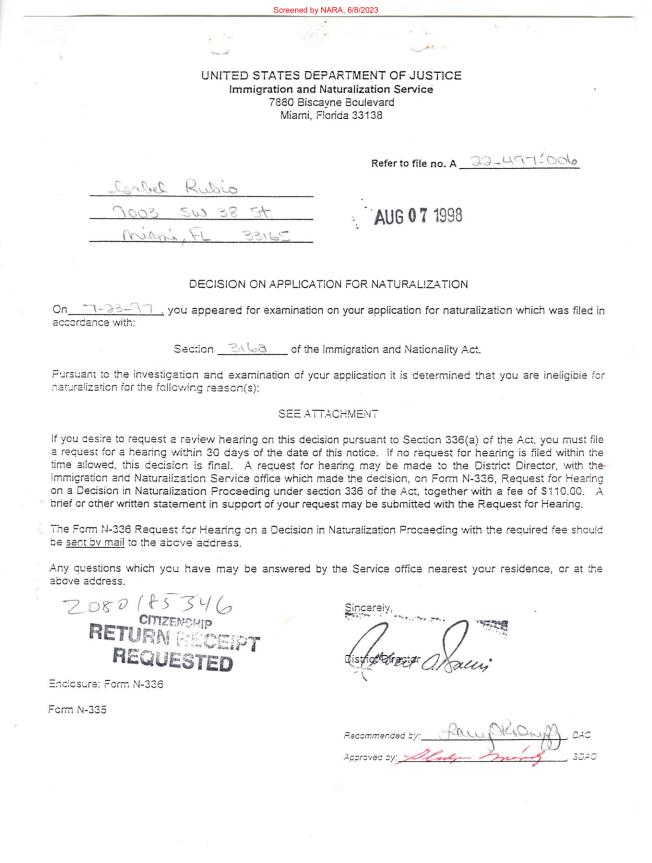 Screened by NARA, 6/8/2023
UNITED STATES DEPARTMENT OF JUSTICE
Immigration and Naturalization Service
7880 Biscayne Boulevard
Miami, Florida 33138
Refer to file no. A 22-497-006
Rubio
7003 SW 38 St
Miami, FL 33165
AUG 07 1998
DECISION ON APPLICATION FOR NATURALIZATION
On 7-23-97, you appeared for examination on your application for naturalization which was filed in
accordance with:
Section 316a of the Immigration and Nationality Act.
Pursuant to the investigation and examination of your application it is determined that you are ineligible for
naturalization for the following reason(s):
SEE ATTACHMENT
If you desire to request a review hearing on this decision pursuant to Section 336(a) of the Act, you must file
a request for a hearing within 30 days of the date of this notice. If no request for hearing is filed within the
time allowed, this decision is final. A request for hearing may be made to the District Director, with the
Immigration and Naturalization Service office which made the decision, on Form N-336, Request for Hearing
on a Decision in Naturalization Proceeding under section 336 of the Act, together with a fee of $110.00. A
brief or other written statement in support of your request may be submitted with the Request for Hearing.
The Form N-336 Request for Hearing on a Decision in Naturalization Proceeding with the required fee should
be sent by mail to the above address.
Any questions which you have may be answered by the Service office nearest your residence, or at the
above address.
2080185346
CITIZENSHIP
RETURN RECEIPT
REQUESTED
Sincerely,
District Director
Enclosure: Form N-336
Form N-335
Recommended by: DAO
Approved by: SDAO